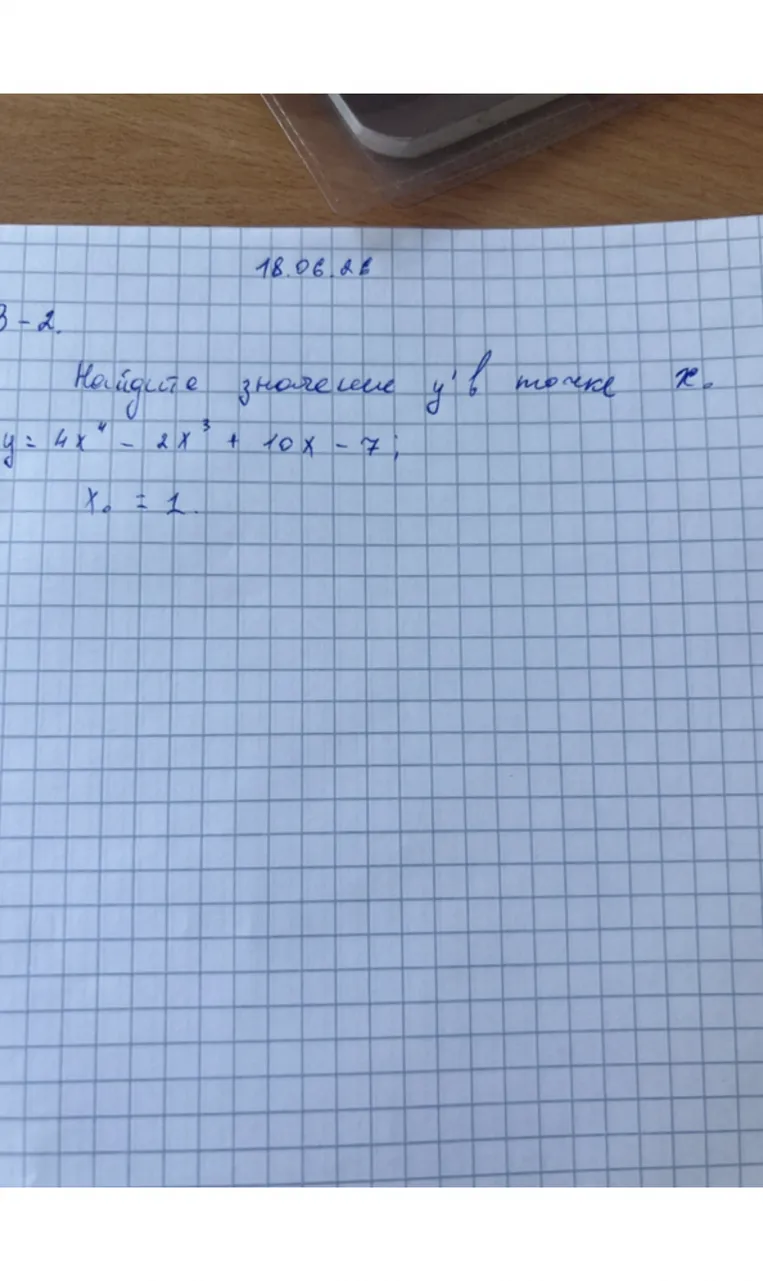 18.06.26
В-2.
Найдите значение y' в точке x₀
y = 4x⁴ - 2x³ + 10x - 7;
x₀ = 1.